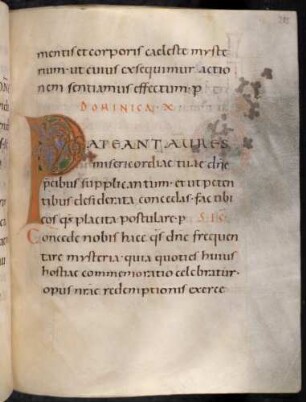 mentis et corporis caeleste myste
rium· ut cuius exsequimur actio
nem sentiamus effectum· p
DOMINICA· X
PATEANT AURES
misericordiae tuae dn̄e
p̄cibus supplicantum· et ut peten
tibus desiderata concedas· fac tibi
eos q̄s placita postulare· p
Concede nobis haec q̄s dn̄e frequen
tare mysteria· quia quoties huius
hostiae commemoratio celebratur·
opus nr̄ae redemptionis exerce